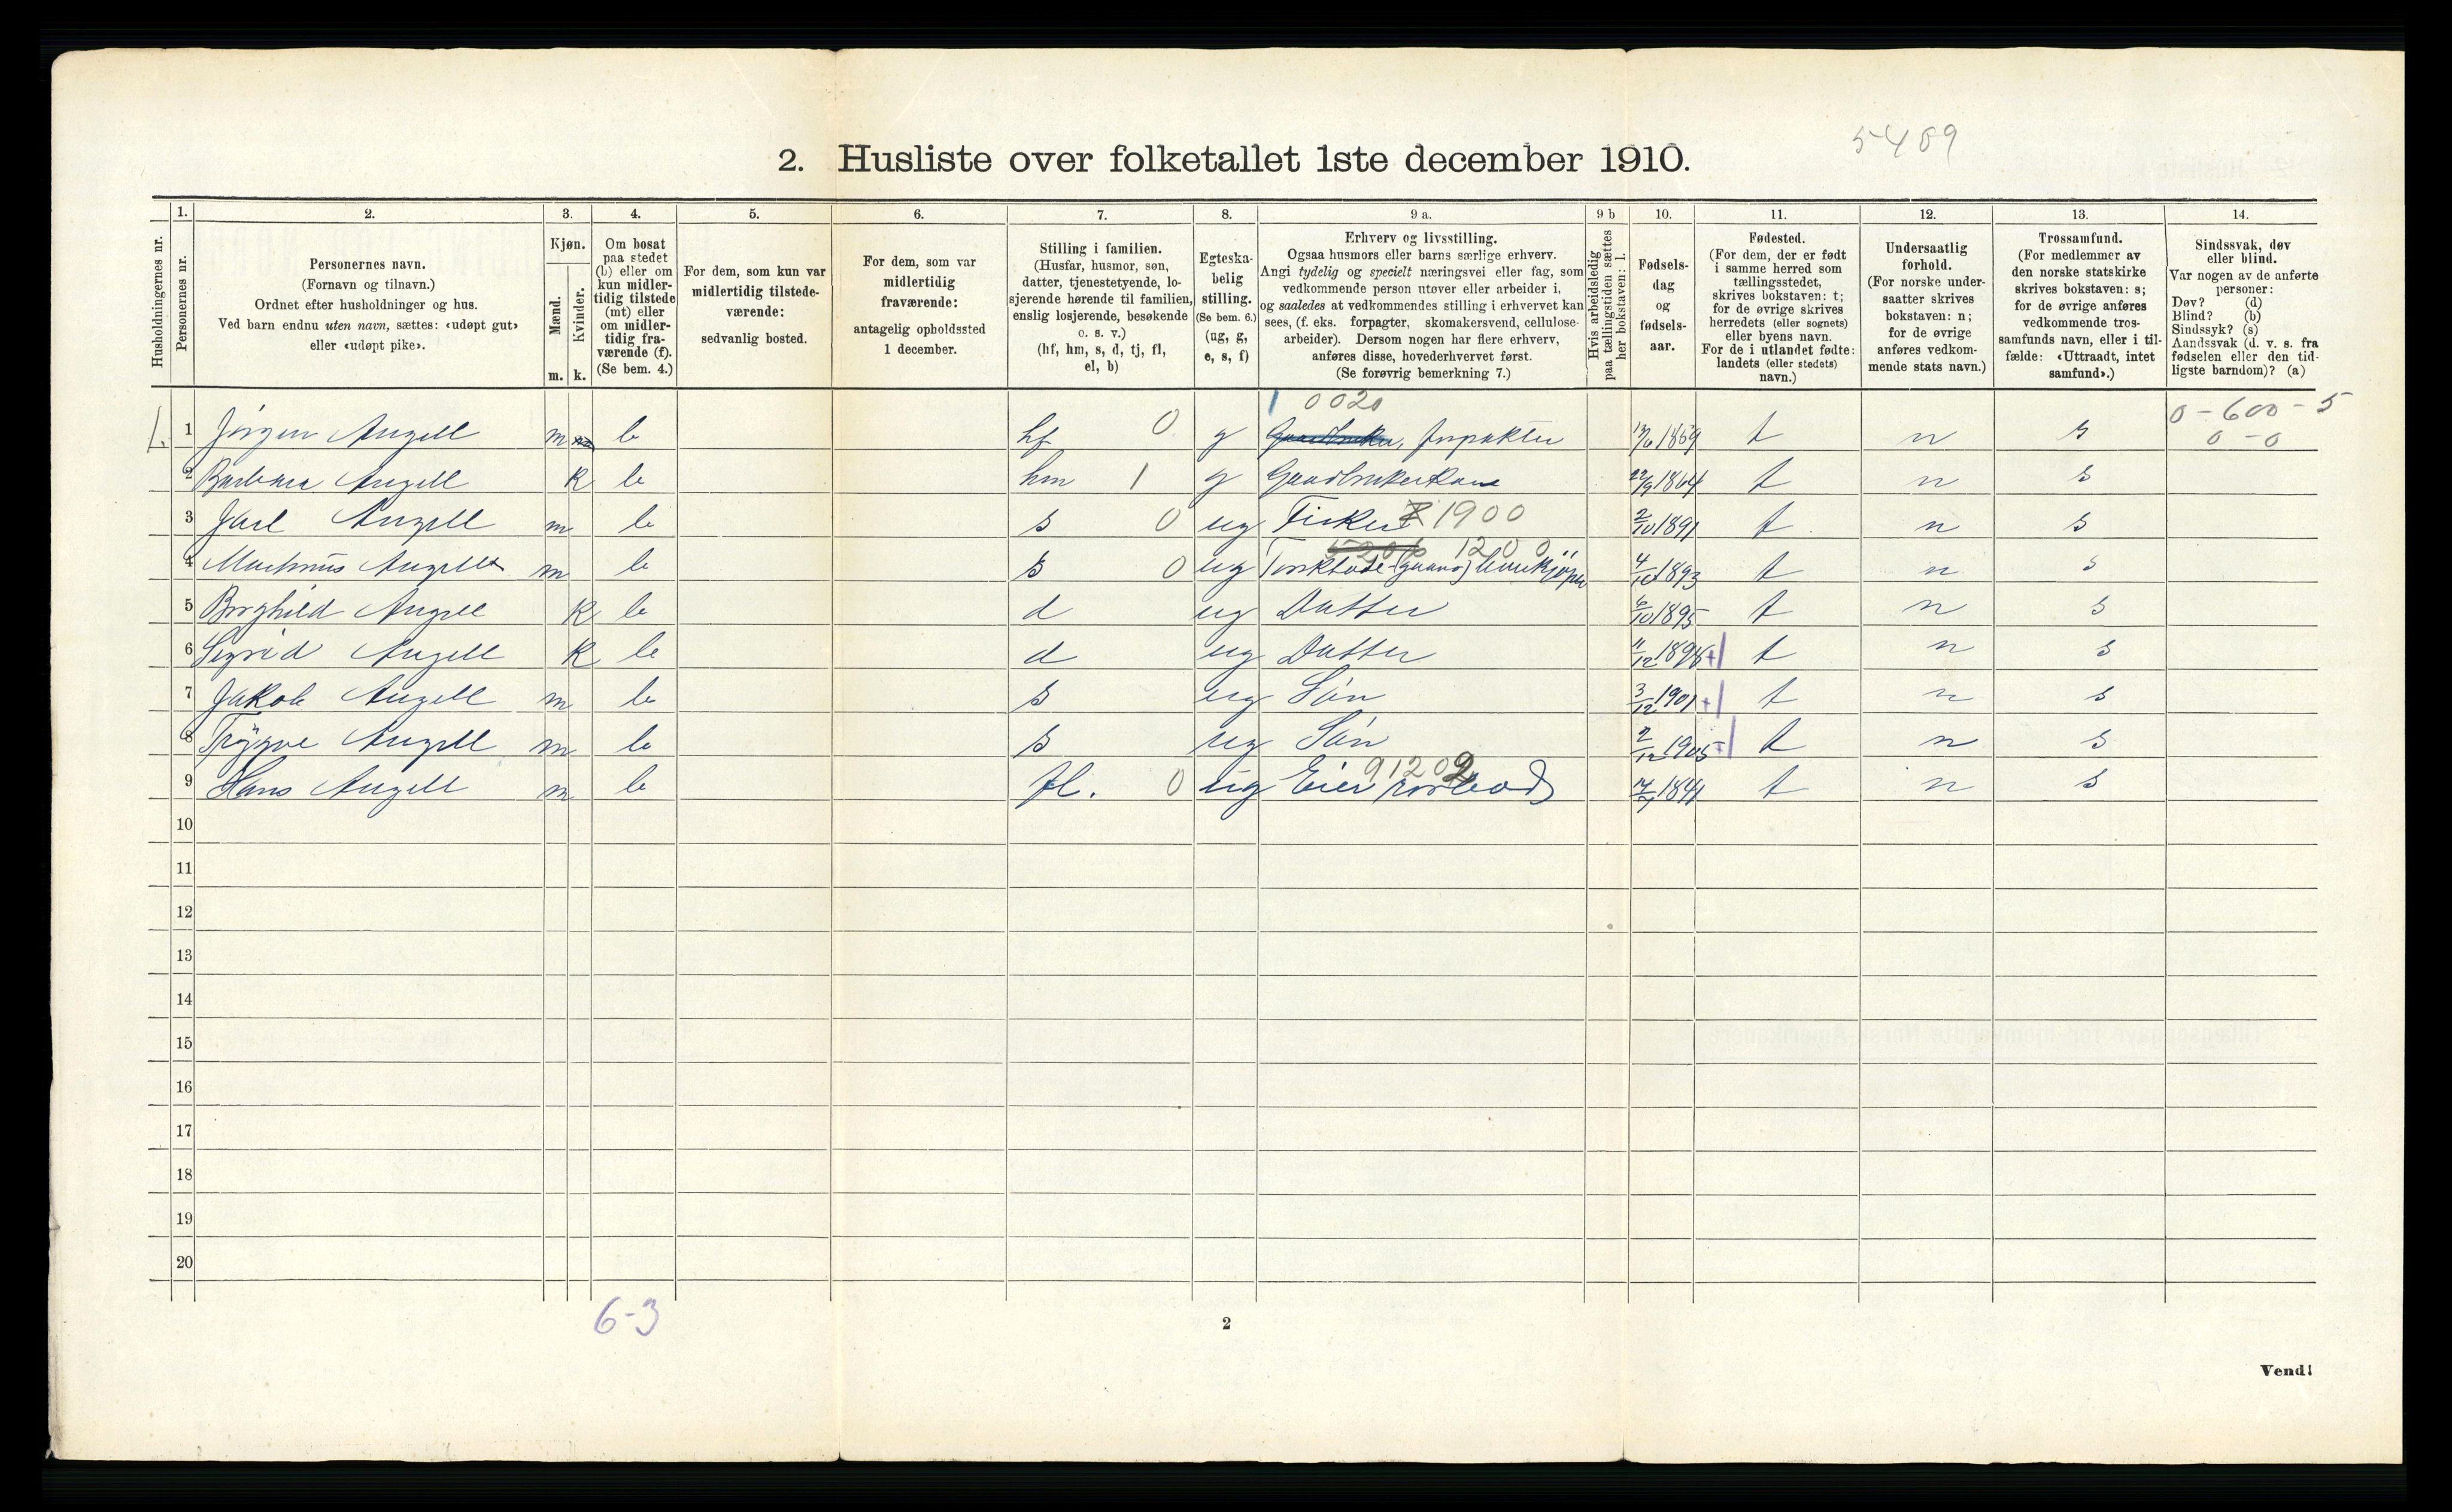 5409
2. Husliste over folketallet 1ste december 1910.
Husholdningernes nr.
1. Personernes nr.
2. Personernes navn.
(Fornavn og tilnavn.)
Ordnet efter husholdninger og hus.
Ved barn endnu uten navn, sættes: «udøpt gut»
eller «udøpt pike».
3. Kjøn.
Mænd. m.
Kvinder. k.
4. Om bosat
paa stedet
(b) eller om
kun midler-
tidig tilstede
(mt) eller
om midler-
tidig fra-
værende (f).
(Se bem. 4.)
5. For dem, som kun var
midlertidig tilstede-
værende:
sedvanlig bosted.
6. For dem, som var
midlertidig
fraværende:
antagelig opholdssted
1 december.
7. Stilling i familien.
(Husfar, husmor, søn,
datter, tjenestetyende, lo-
sjerende hørende til familien,
enslig losjerende, besøkende
o. s. v.)
(hf, hm, s, d, tj, fl,
el, b)
8. Egteska-
belig
stilling.
(Se bem. 6.)
(ug, g,
e, s, f)
9 a. Erhverv og livsstilling.
Ogsaa husmors eller barns særlige erhverv.
Angi tydelig og specielt næringsvei eller fag, som
vedkommende person utøver eller arbeider i,
og saaledes at vedkommendes stilling i erhvervet kan
sees, (f. eks. forpagter, skomakersvend, cellulose-
arbeider). Dersom nogen har flere erhverv,
anføres disse, hovederhvervet først.
(Se forøvrig bemerkning 7.)
9 b Hvis arbeidsledig
paa tællingstiden sættes
her bokstaven: l.
10. Fødsels-
dag
og
fødsels-
aar.
11. Fødested.
(For dem, der er født
i samme herred som
tællingsstedet,
skrives bokstaven: t;
for de øvrige skrives
herredets (eller sognets)
eller byens navn.
For de i utlandet fødte:
landets (eller stedets)
navn.)
12. Undersaatlig
forhold.
(For norske under-
saatter skrives
bokstaven: n;
for de øvrige
anføres vedkom-
mende stats navn.)
13. Trossamfund.
(For medlemmer av
den norske statskirke
skrives bokstaven: s;
for de øvrige anføres
vedkommende tros-
samfunds navn, eller i til-
fælde: «Uttraadt, intet
samfund».)
14. Sindssvak, døv
eller blind.
Var nogen av de anførte
personer:
Døv? (d)
Blind? (b)
Sindssyk? (s)
Aandssvak (d. v. s. fra
fødselen eller den tid-
ligste barndom)? (a)
1 0020 0-600-5
1. 1 Jörgen Angell m b hf 0 g Gaardbruker, Inspektör 1869 t n s 0-0
2 Barbara Angell k b hm 1 g Gaardbrukerkone 22/9 1864 t n s
3 Jarl Angell m b s 0 ug Fisker 1900 2/10 1891 t n s
1200
4 Angell m b s 0 ug (guano) 4/10 1893 t n s
5 Borghild Angell k b d ug Datter 6/10 1895 t n s
6 Sigrid Angell k b d ug Datter 11/12 1898 +1 t n s
7 Jakob Angell m b s ug Sön 3/12 1901 +1 t n s
8 Trÿgve Angell m b s ug Sön 2/12 1905 +1 t n s
91202
9 Hans Angell m b fl. 0 ug Eier 1841 t n s
10
11
12
13
14
15
16
17
18
19
20
6-3
2
Vend!